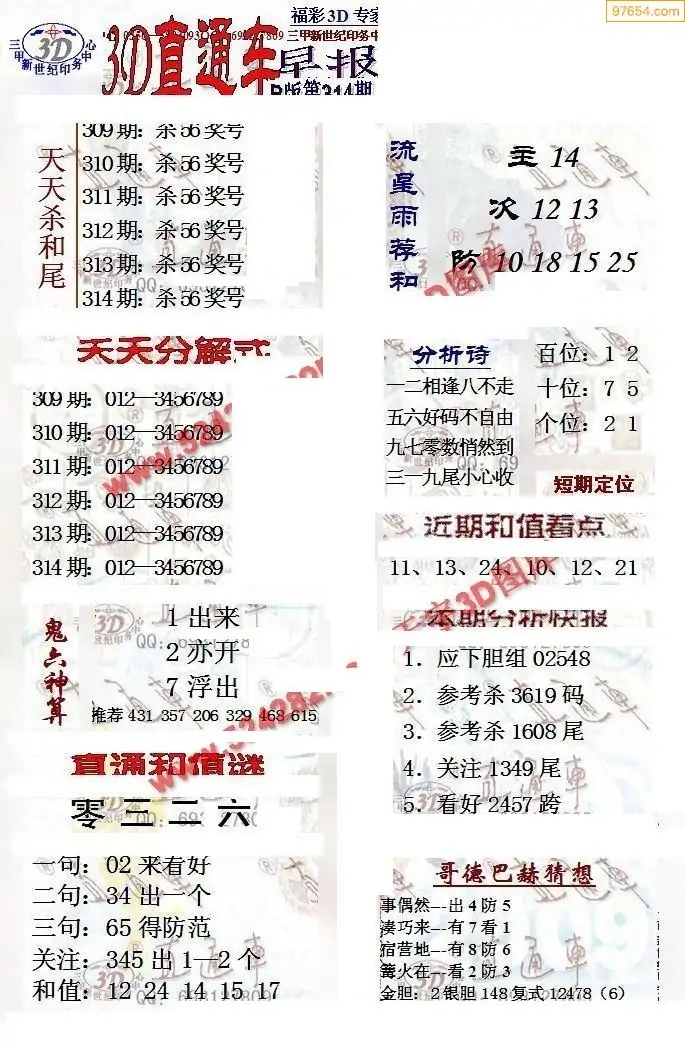 97654.com
福彩3D 专家
三甲新世纪印务中心
3D
3D直通车
早报
B版第314期
天天杀和尾
309期：杀56奖号
310期：杀56奖号
311期：杀56奖号
312期：杀56奖号
313期：杀56奖号
314期：杀56奖号
流星雨荐和
主 14
次 12 13
防 10 18 15 25
天天分解式
309期：012—3456789
310期：012—3456789
311期：012—3456789
312期：012—3456789
313期：012—3456789
314期：012—3456789
分析诗
一二相逢八不走
五六好码不自由
九七零数悄然到
三一九尾小心收
百位：1 2
十位：7 5
个位：2 1
短期定位
近期和值看点
11、13、24、10、12、21
鬼六神算
1 出来
2 亦开
7 浮出
推荐 431 357 206 329 468 615
本期分析快报
1．应下胆组 02548
2．参考杀 3619 码
3．参考杀 1608 尾
4．关注 1349 尾
5．看好 2457 跨
直通和值谜
零 三 二 六
一句：02 来看好
二句：34 出一个
三句：65 得防范
关注：345 出 1—2 个
和值：12 24 14 15 17
哥德巴赫猜想
事偶然---出 4 防 5
凑巧来---有 7 看 1
宿营地---有 8 防 6
篝火在---看 2 防 3
金胆：2 银胆 148 复式 12478（6）